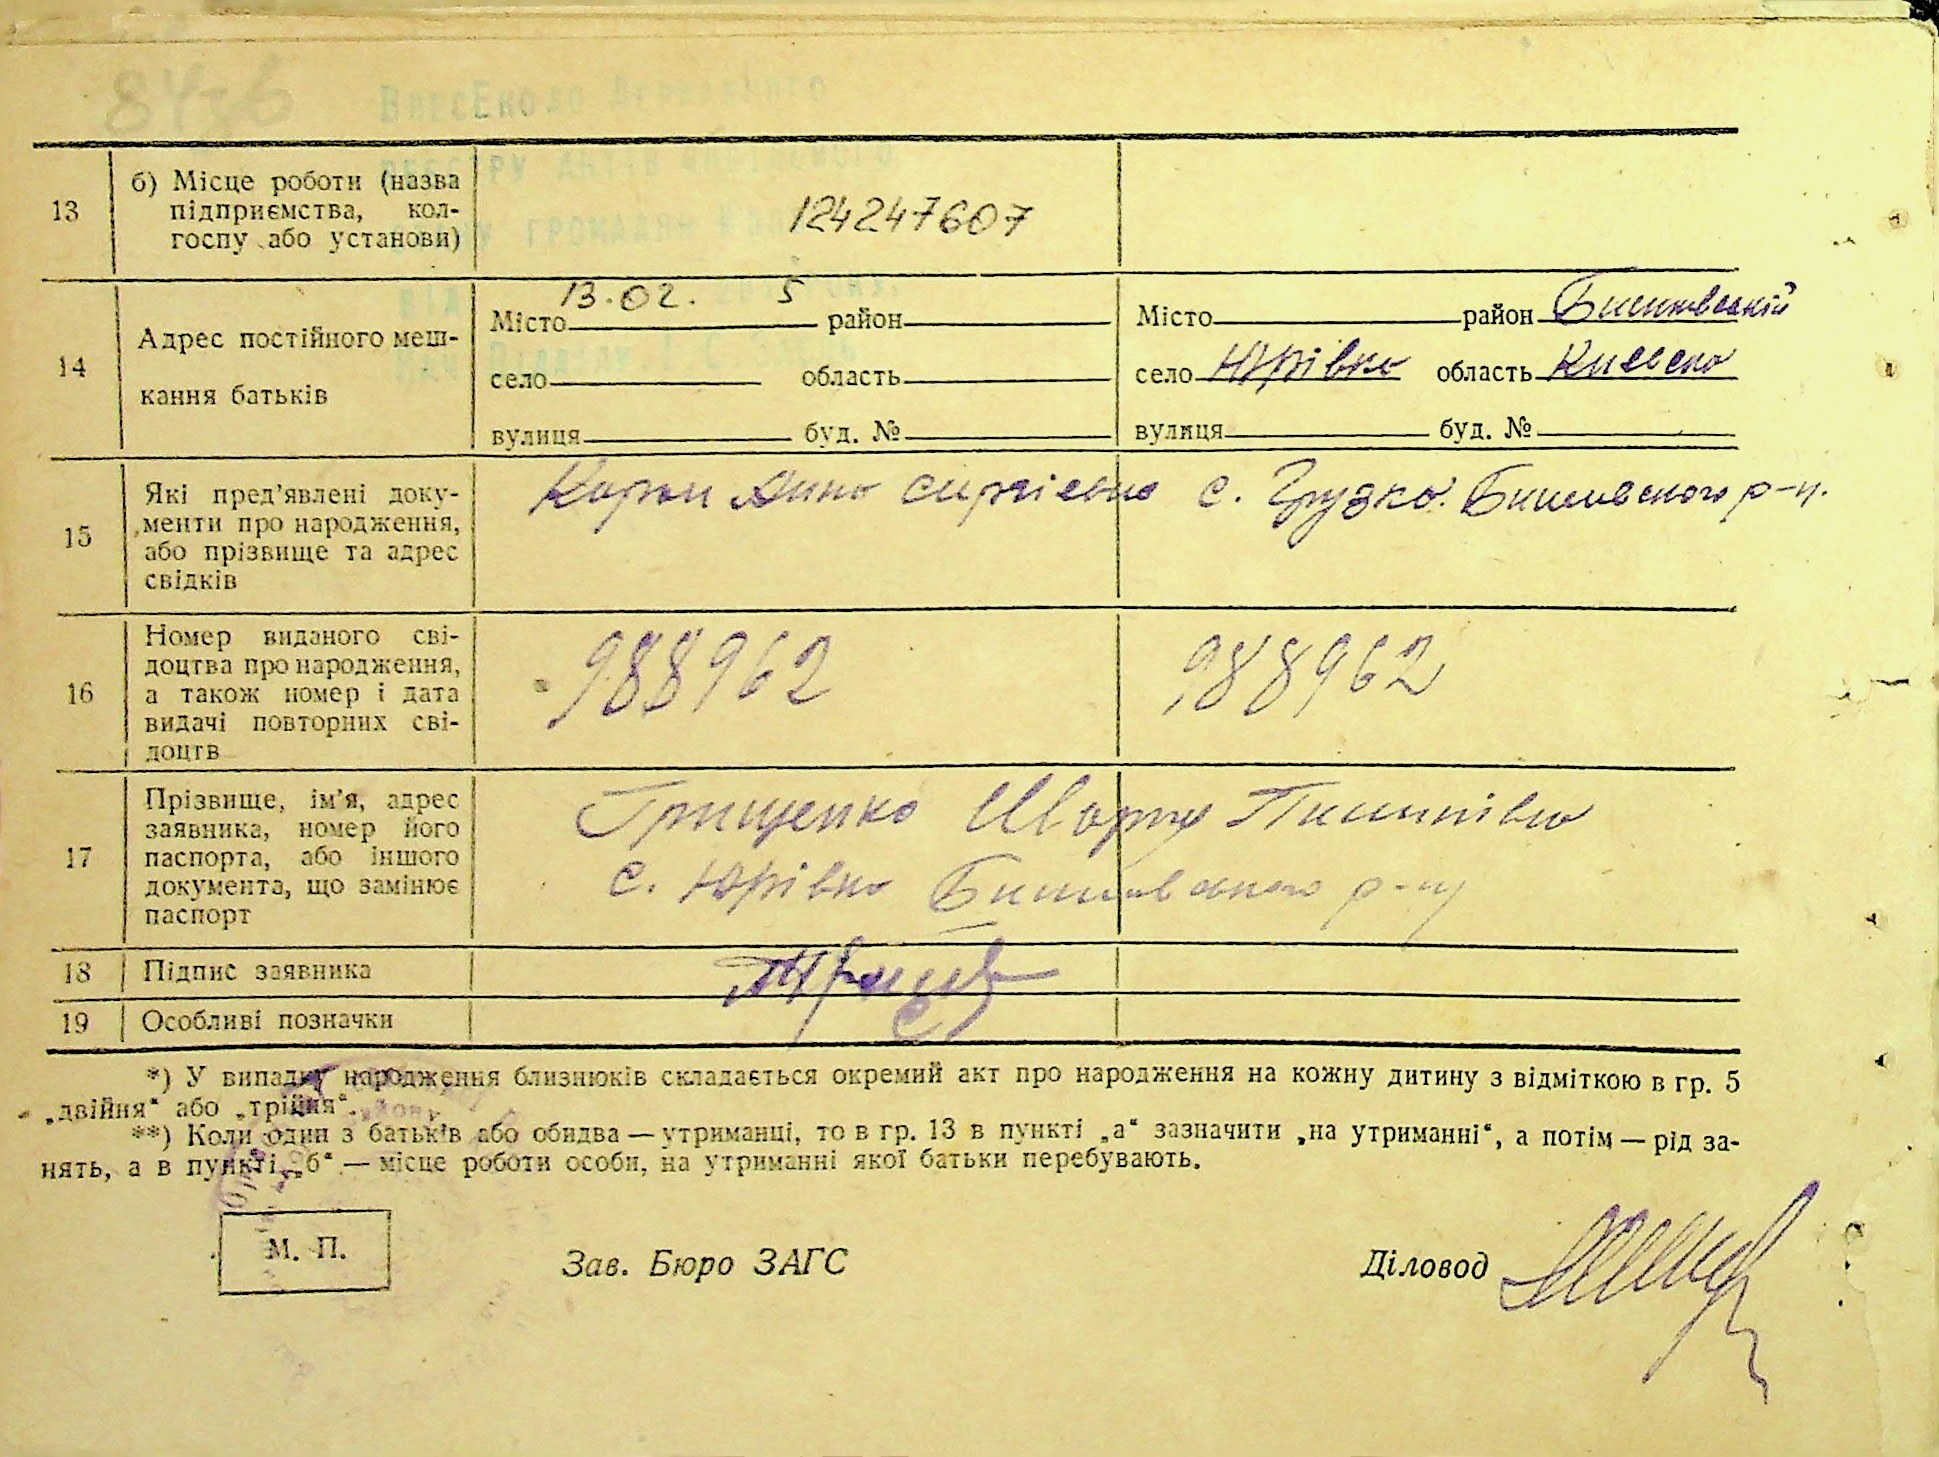 84зб
ВнесЕно до Державного
реєстру актів цивільного
громадян
від
13.02. 5
13
б) Місце роботи (назва
підприємства, кол-
госпу або установи)
124247607
14
Адрес постійного меш-
кання батьків
Місто район
село область
вулиця буд. №
Місто район Бишівський
село Юрівка область Київська
вулиця буд. №
15
Які пред'явлені доку-
менти про народження,
або прізвище та адрес
свідків
Анна с. Грузка. Бишівського р-н.
16
Номер виданого сві-
доцтва про народження,
а також номер і дата
видачі повторних сві-
доцтв
988962 988962
17
Прізвище, ім'я, адрес
заявника, номер його
паспорта, або іншого
документа, що замінює
паспорт
Грищенко Марія Пилипівна
с. Юрівка Бишівського р-ну
18
Підпис заявника
19
Особливі позначки
*) У випадку народження близнюків складається окремий акт про народження на кожну дитину з відміткою в гр. 5
„двійня“ або „трійня“.
**) Коли один з батьків або обидва — утриманці, то в гр. 13 в пункті „а“ зазначити „на утриманні“, а потім — рід за-
нять, а в пункті „б“ — місце роботи особи, на утриманні якої батьки перебувають.
М. П.
Зав. Бюро ЗАГС
Діловод